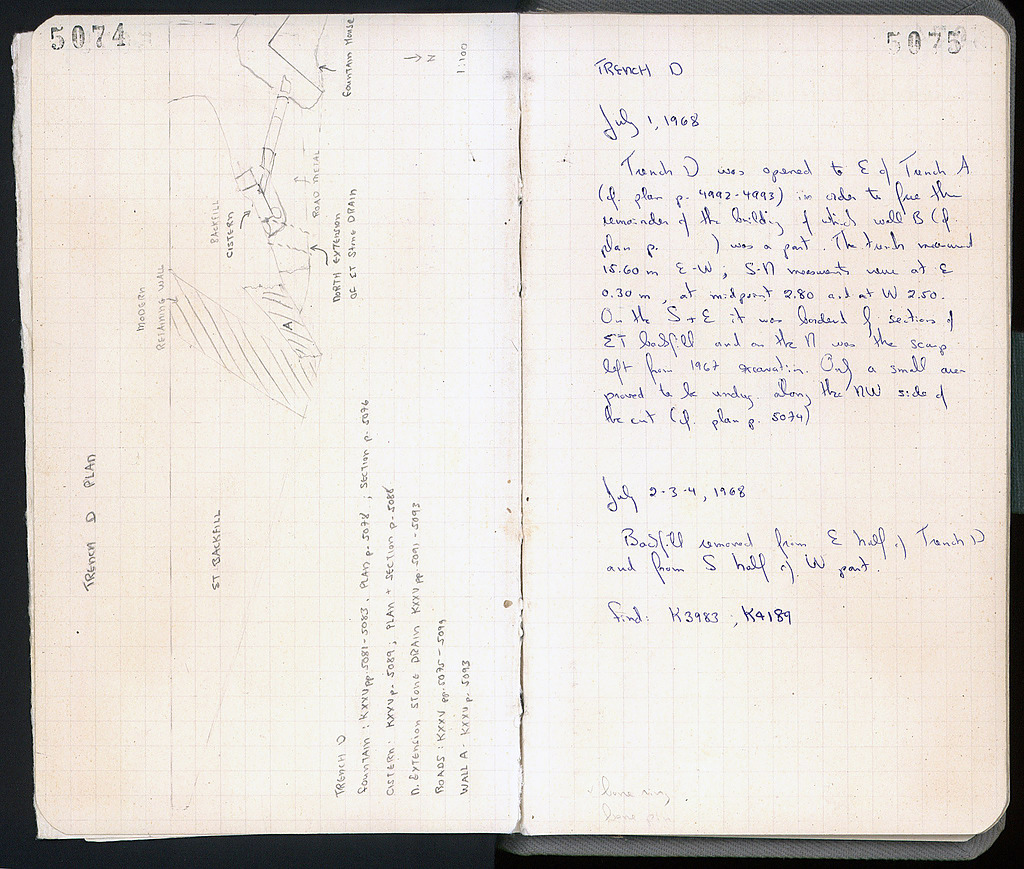 5074
TRENCH D PLAN
ST BACKFILL
MODERN
RETAINING WALL
BACKFILL
CISTERN
A
ROAD METAL
NORTH EXTENSION
OF ST STONE DRAIN
Fountain House
N
1:100
TRENCH D
FOUNTAIN : KXXV pp. 5081-5083, PLAN p. 5078 ; SECTION p. 5076
CISTERN : KXXV p. 5089 ; PLAN + SECTION p. 5088
N. EXTENSION STONE DRAIN KXXV pp. 5091-5093
ROADS : KXXV pp. 5095-5099
WALL A - KXXV p. 5093
5075
TRENCH D
July 1, 1968
Trench D was opened to E of Trench A
(cf. plan p. 4992-4993) in order to free the
remainder of the building of which wall B (cf.
plan p. ) was a part. The trench measured
15.60 m E-W ; S-N measurments were at E
0.30 m, at midpoint 2.80 and at W 2.50.
On the S + E it was borderd by sections of
ST backfill and on the N was the scarp
left from 1967 excavation. Only a small area
proved to be undug along the NW side of
the cut (cf. plan p. 5074)
July 2-3-4, 1968
Backfill removed from E half of Trench D
and from S half of W part.
Find: K3983 ; K4189
bone ring
bone pin